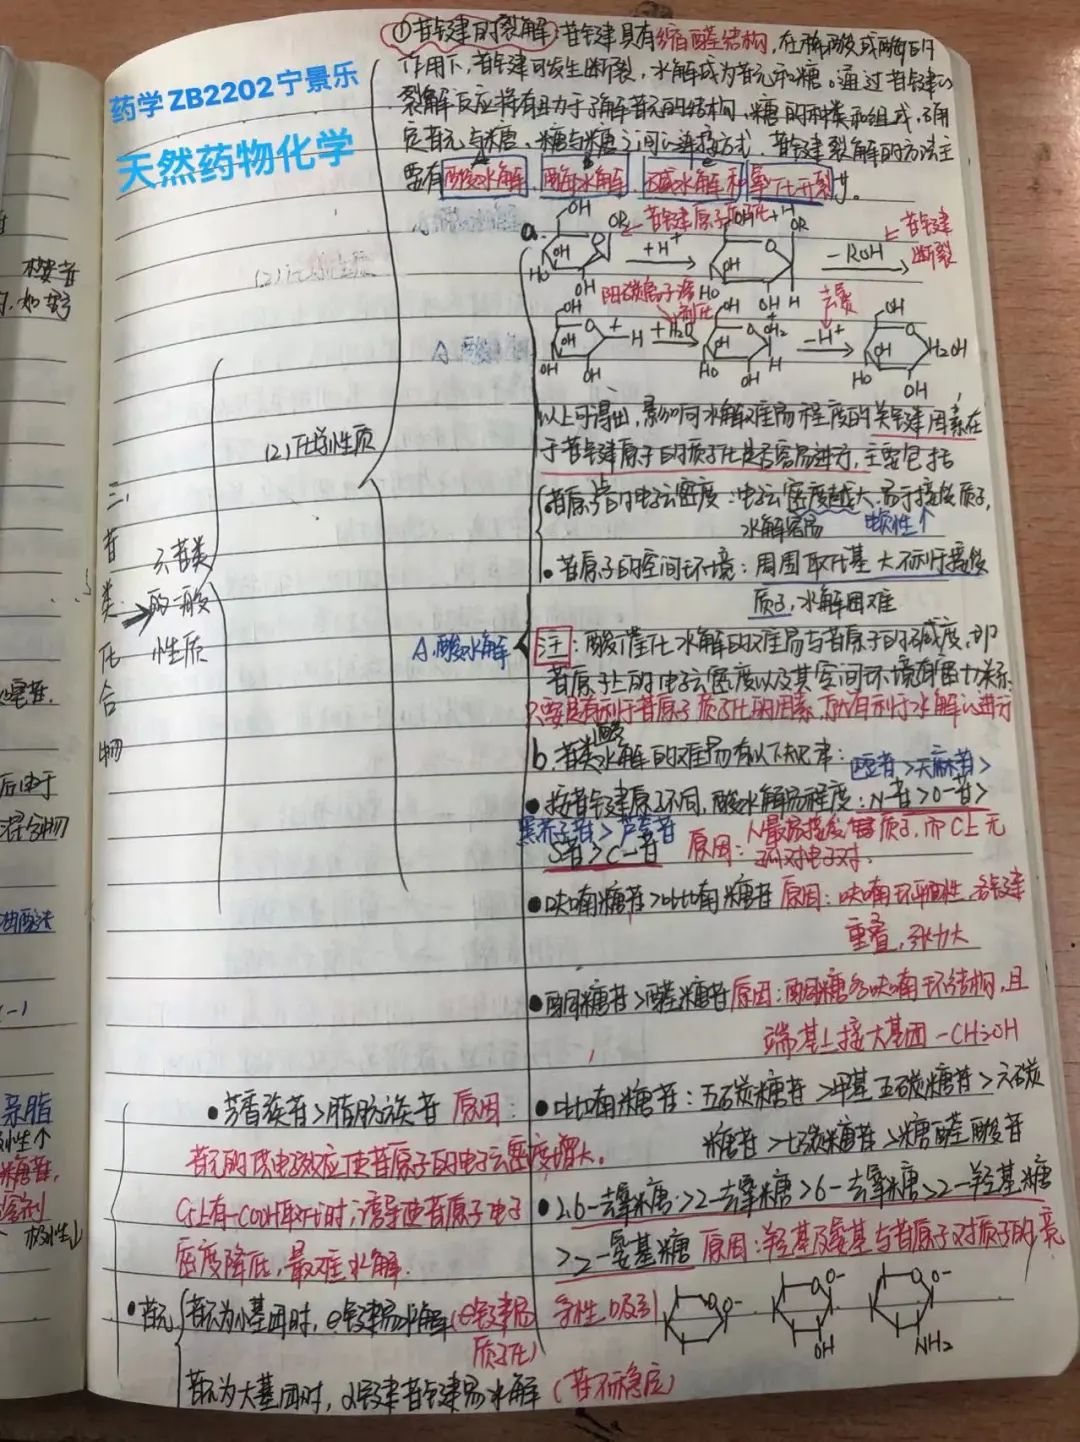 药学ZB2202宁景乐
天然药物化学
三、苷类化合物
3、苷类的一般性质
(2)化学性质
①苷键的裂解:苷键具有缩醛结构,在稀酸或酶的
作用下,苷键可发生断裂,水解成为苷元和糖。通过苷键的
裂解反应将有助于了解苷元的结构、糖的种类和组成,确
定苷元与糖、糖与糖之间的连接方式,苷键裂解的方法主
要有酸水解、酶水解、碱水解和氧化开裂等。
A.酸水解
a.
苷键原子质子化
+H⁺
-ROH
苷键断裂
阳碳离子溶剂化
+H₂O
去氢
-H⁺
以上可得出,影响水解难易程度的关键因素在
于苷键原子的质子化是否容易进行,主要包括
苷原子的电子云密度:电子云密度越大,易于接受质子,
水解容易 碱性↑
苷原子的空间环境:周围取代基大不利于接受
质子,水解困难
注:酸催化水解的难易与苷原子的碱度,即
苷原子上的电子云密度以及其空间环境有密切关系
只要是有利于苷原子质子化的因素,就有利于水解的进行
b.苷类酸水解的难易有以下规律:
巫苷>天麻苷>
按苷键原子不同,酸水解易程度:N-苷>O-苷>
黑芥子苷>芦荟苷
S苷>C-苷 原因:N最易接受质子,而C上无
孤对电子对.
呋喃糖苷>吡喃糖苷 原因:呋喃环平面性,各键
重叠,张力大
酮糖苷>醛糖苷 原因:酮糖多呋喃环结构,且
端基上接大基团-CH₂OH
吡喃糖苷:五碳糖苷>甲基五碳糖苷>六碳
糖苷>七碳糖苷>糖醛酸苷
C₅上有-COOH取代时,诱导使苷原子电子
密度降低,最难水解.
2.6-去氧糖>2-去氧糖>6-去氧糖>2-羟基糖
>2-氨基糖 原因:羟基及氨基与苷原子对质子的竞
争性吸引
OH
NH₂
芳香族苷>脂肪族苷 原因:
苷元的供电效应使苷原子的电子云密度增大.
苷元
苷元为小基团时,e键易水解(e键易
质子化)
苷元为大基团时,a键苷键易水解(苷不稳定)